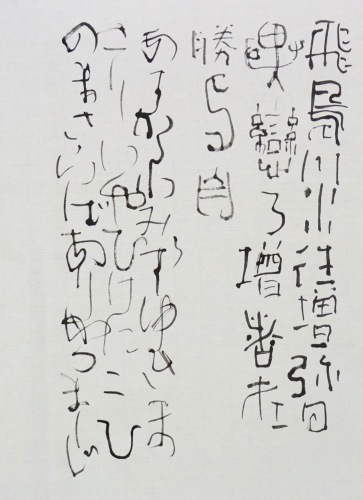 飛鳥川水往増弥日
異戀乃増者在
勝申自
あすかわみずゆきま
さりいやひけにこひ
のまさらばありかつましじ